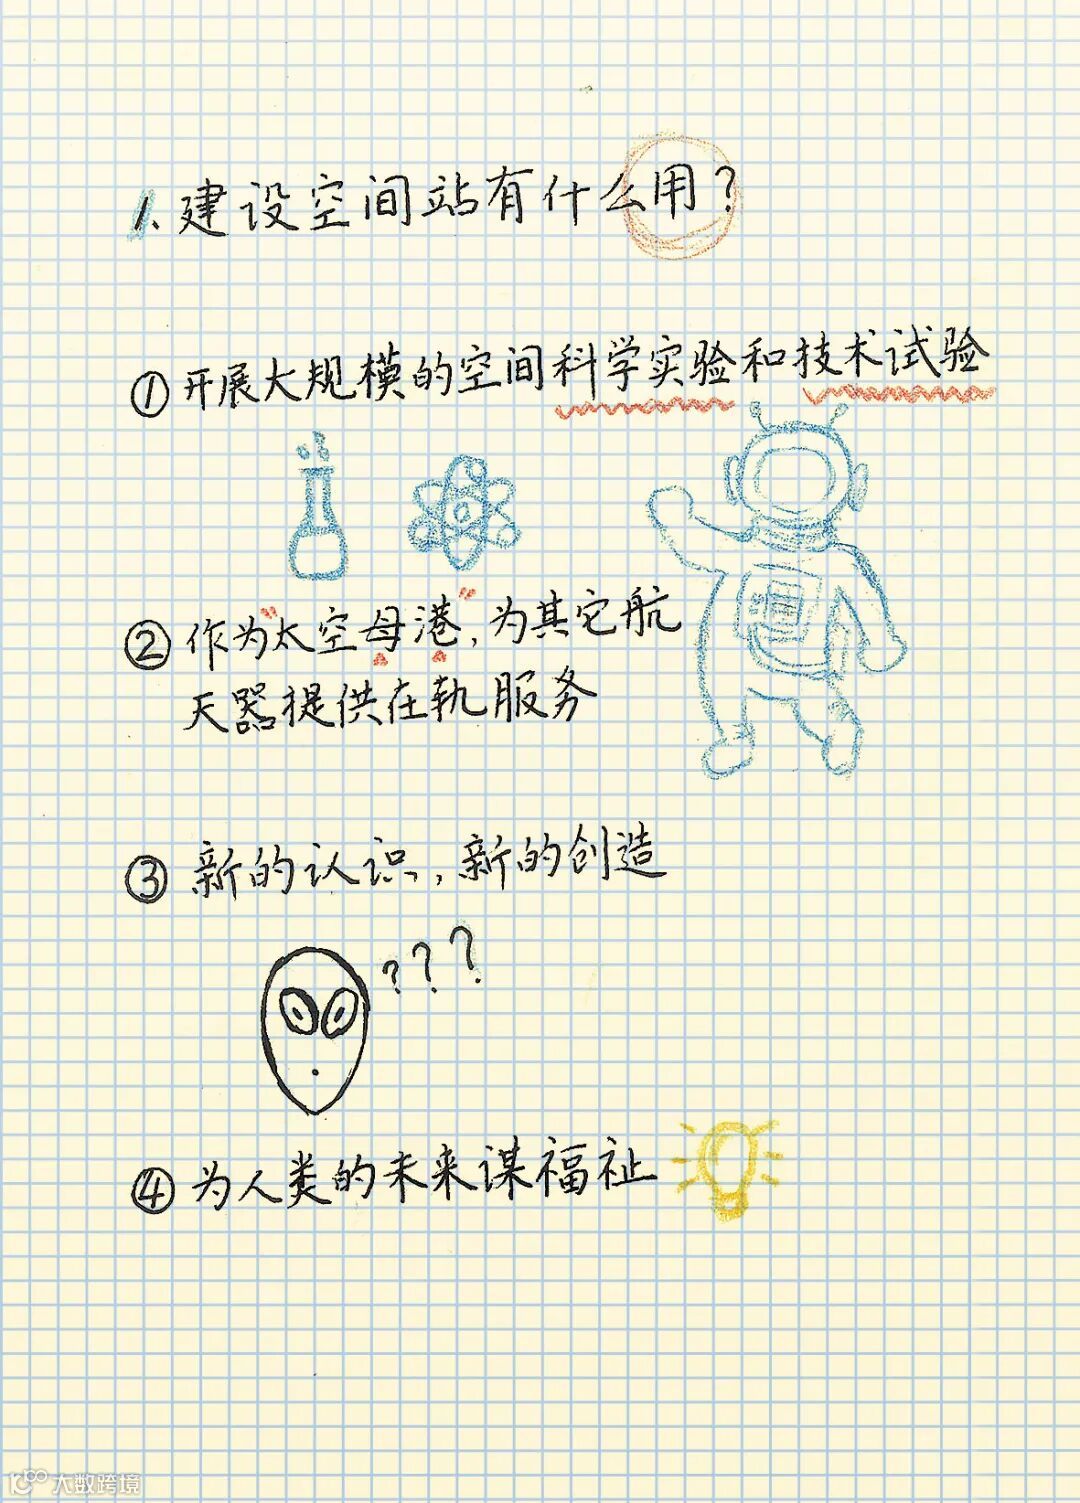 1、建设空间站有什么用?
①开展大规模的空间科学实验和技术试验
②作为"太空母港",为其它航
天器提供在轨服务
③新的认识,新的创造
???
④为人类的未来谋福祉
大数跨境